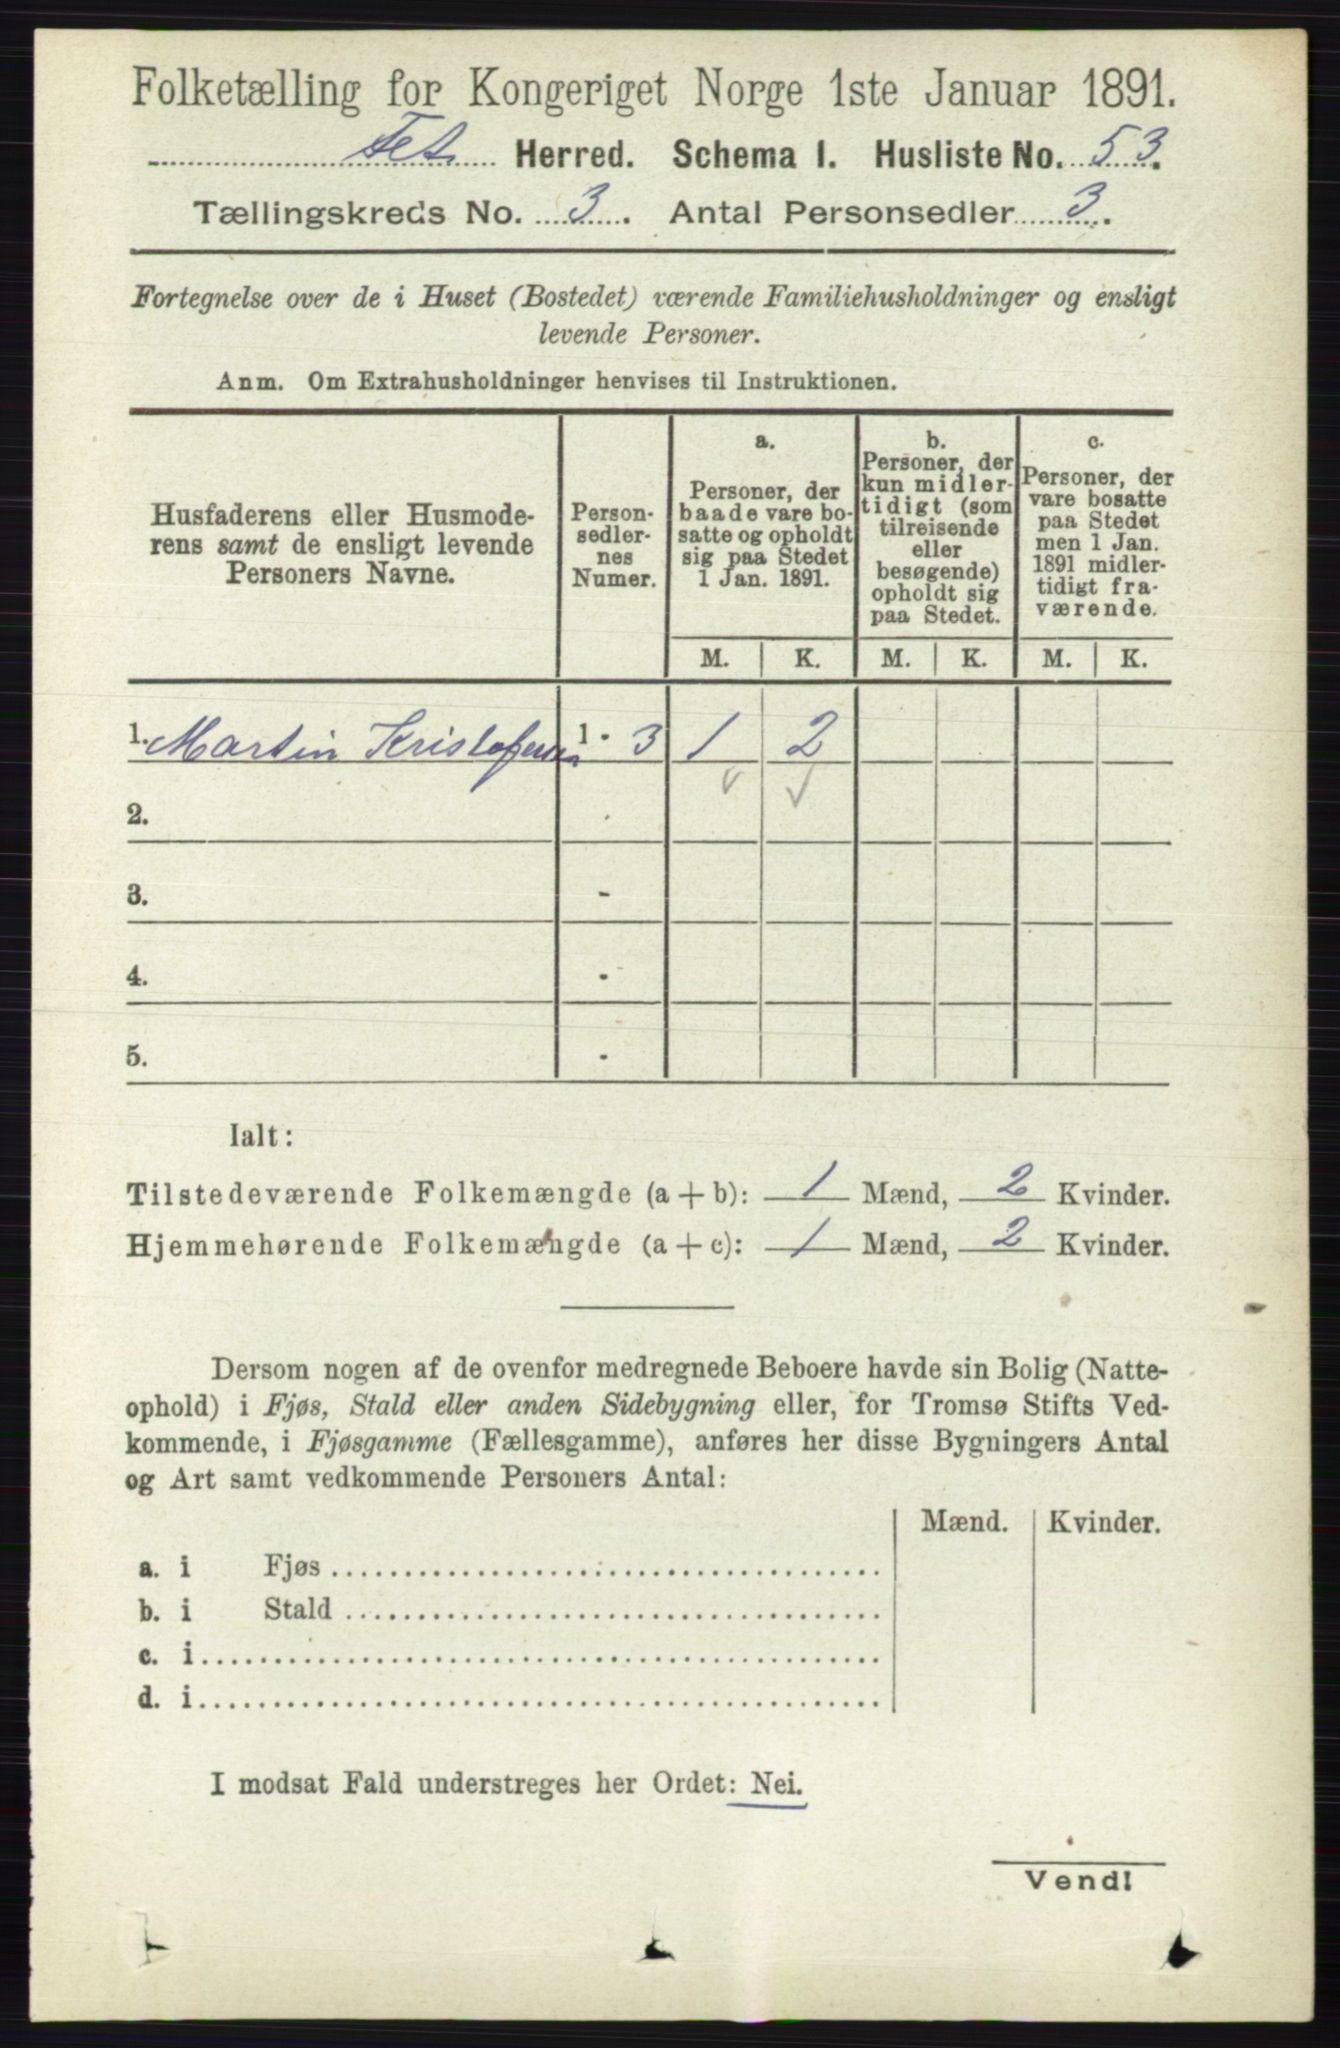 Folketælling for Kongeriget Norge 1ste Januar 1891.
Fet Herred. Schema I. Husliste No. 53.
Tællingskreds No. 3. Antal Personsedler 3.
Fortegnelse over de i Huset (Bostedet) værende Familiehusholdninger og ensligt
levende Personer.
Anm. Om Extrahusholdninger henvises til Instruktionen.
Husfaderens eller Husmode-
rens samt de ensligt levende
Personers Navne.
Person-
sedler-
nes
Numer.
a.
Personer, der
baade vare bo-
satte og opholdt
sig paa Stedet
1 Jan. 1891.
b.
Personer, der
kun midler-
tidigt (som
tilreisende
eller
besøgende)
opholdt sig
paa Stedet.
c.
Personer, der
vare bosatte
paa Stedet
men 1 Jan.
1891 midler-
tidigt fra-
værende.
M. K. M. K. M. K.
1. Martin Kristofersen 1 - 3 1 2
2. -
3. -
4. -
5. -
Ialt:
Tilstedeværende Folkemængde (a + b): 1 Mænd, 2 Kvinder.
Hjemmehørende Folkemængde (a + c): 1 Mænd, 2 Kvinder.
Dersom nogen af de ovenfor medregnede Beboere havde sin Bolig (Natte-
ophold) i Fjøs, Stald eller anden Sidebygning eller, for Tromsø Stifts Ved-
kommende, i Fjøsgamme (Fællesgamme), anføres her disse Bygningers Antal
og Art samt vedkommende Personers Antal:
Mænd. Kvinder.
a. i Fjøs
b. i Stald
c. i
d. i
I modsat Fald understreges her Ordet: Nei.
Vend!